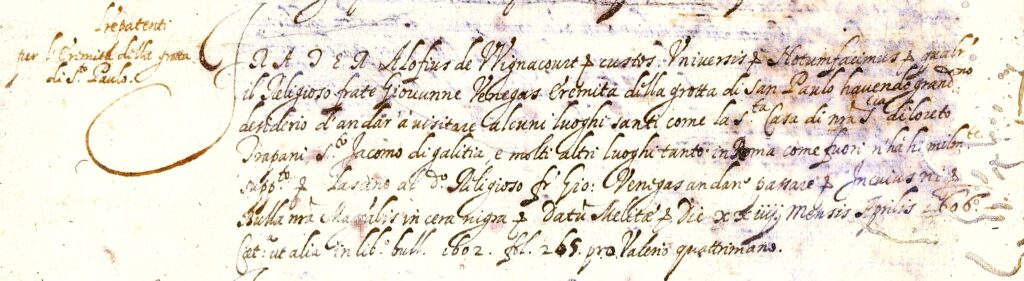 lrẽ patenti
per l'Eremita della grotta
di S.to Paulo.
FRATER Alofius de Wignacourt & custos. Universis & Notum facimus & qualm.te
il Religioso frate Giovanne Venegas Eremita della grotta di San Paulo havendo grand.mo
desiderio d'andar' à visitare alcuni luoghi santi come la S.ta Casa di nrã S.ra di loreto
Trapani S.to Jacomo di galitia, e molti altri luoghi tanto in Roma come fuori n'ha humilm.te
supp.to & Lascino al d.o Religioso fr' Gio: Venegas andare passare & In cuius rei &
Bulla nrã Mag.alis in cera nigra & Datũ Melitæ & Die xxiiij mensis Aprilis 1606.
Cæt.a ut alia in lib.o bull. 1602. fol. 265. pro Valerio quattrimano.